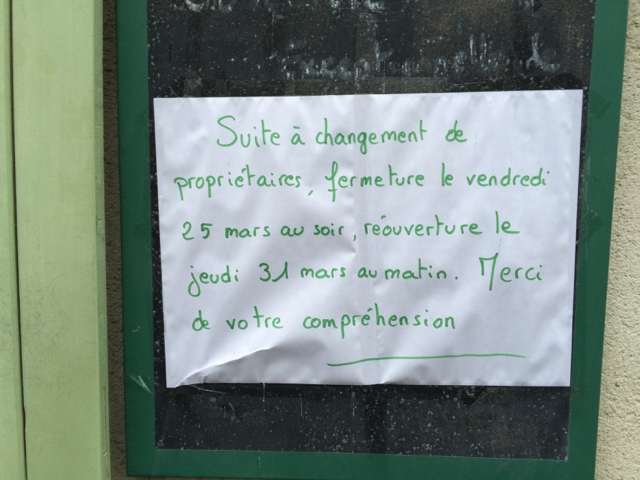 Suite à changement de
propriétaires, fermeture le vendredi
25 mars au soir, réouverture le
jeudi 31 mars au matin. Merci
de votre compréhension